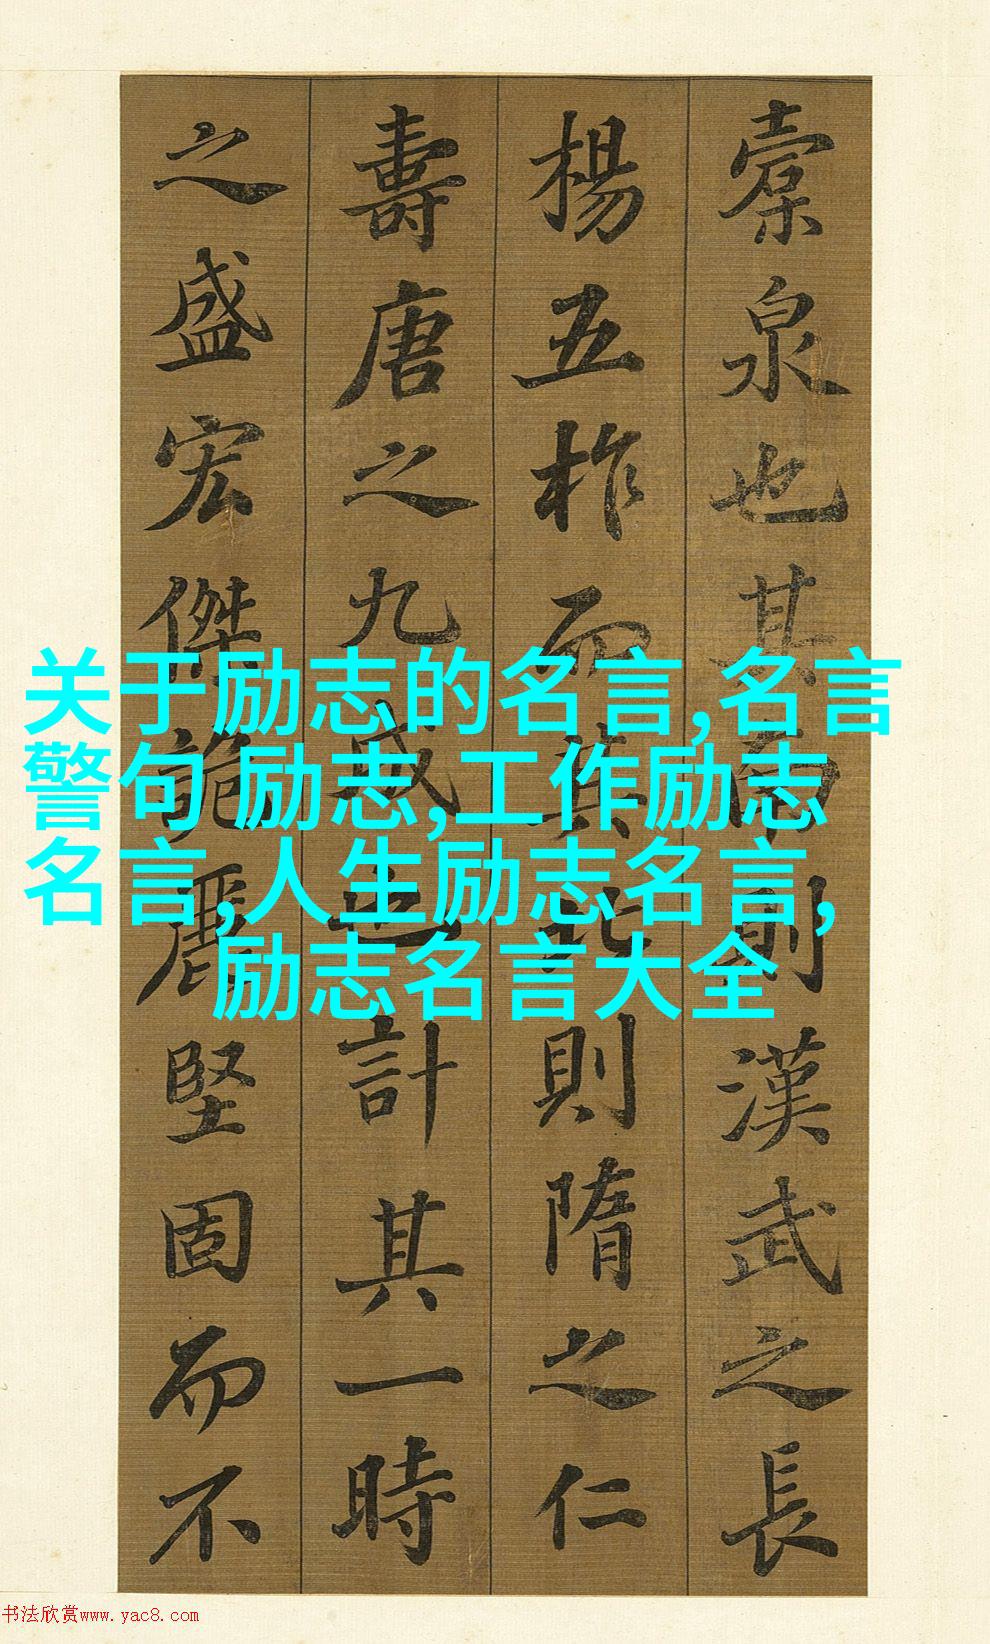 槖泉也其南則漢武之長
楊五柞而其北則隋之仁
壽唐之九成也計其一時
之盛宏傑詭麗堅固而不
关于励志的名言,名言
警句 励志,工作励志
名言,人生励志名言,
励志名言大全
书法欣赏www.yac8.com